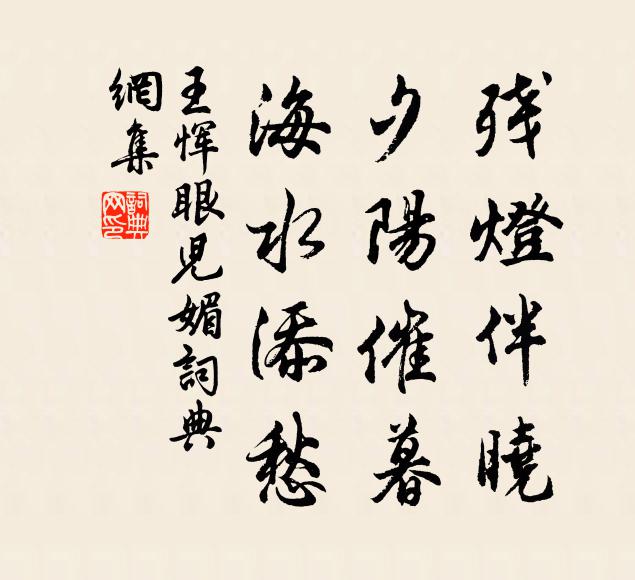 残燈伴曉
夕陽催暮
海水添愁
王惲眼兒媚詞典
網集
詞典網印